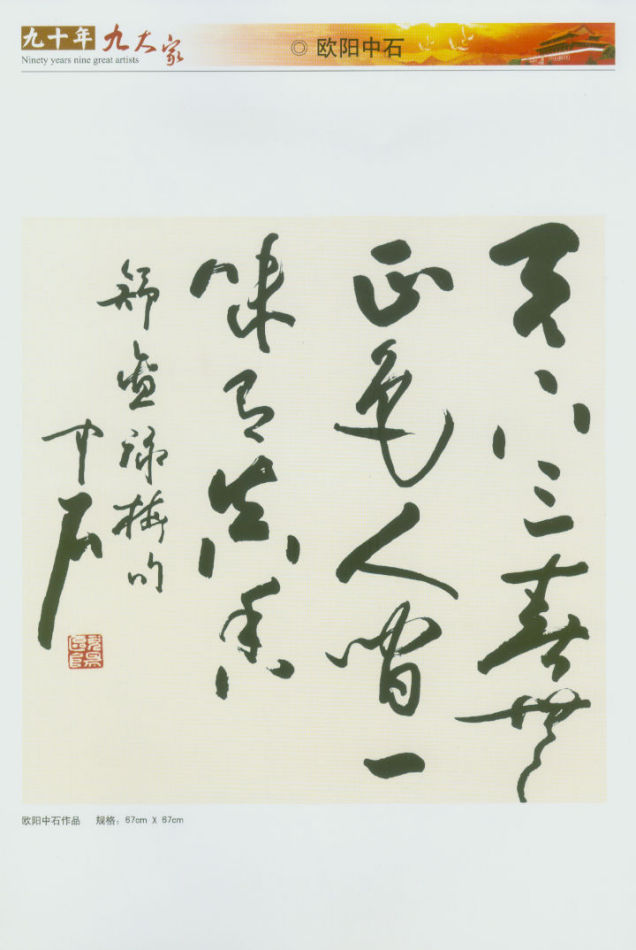 九十年 九大家
Ninety years nine great artists
◎ 欧阳中石
天下三春無
正色人間一
味有真香
舒亶詠梅句
中石
欧阳中石作品 规格：67cm X 67cm